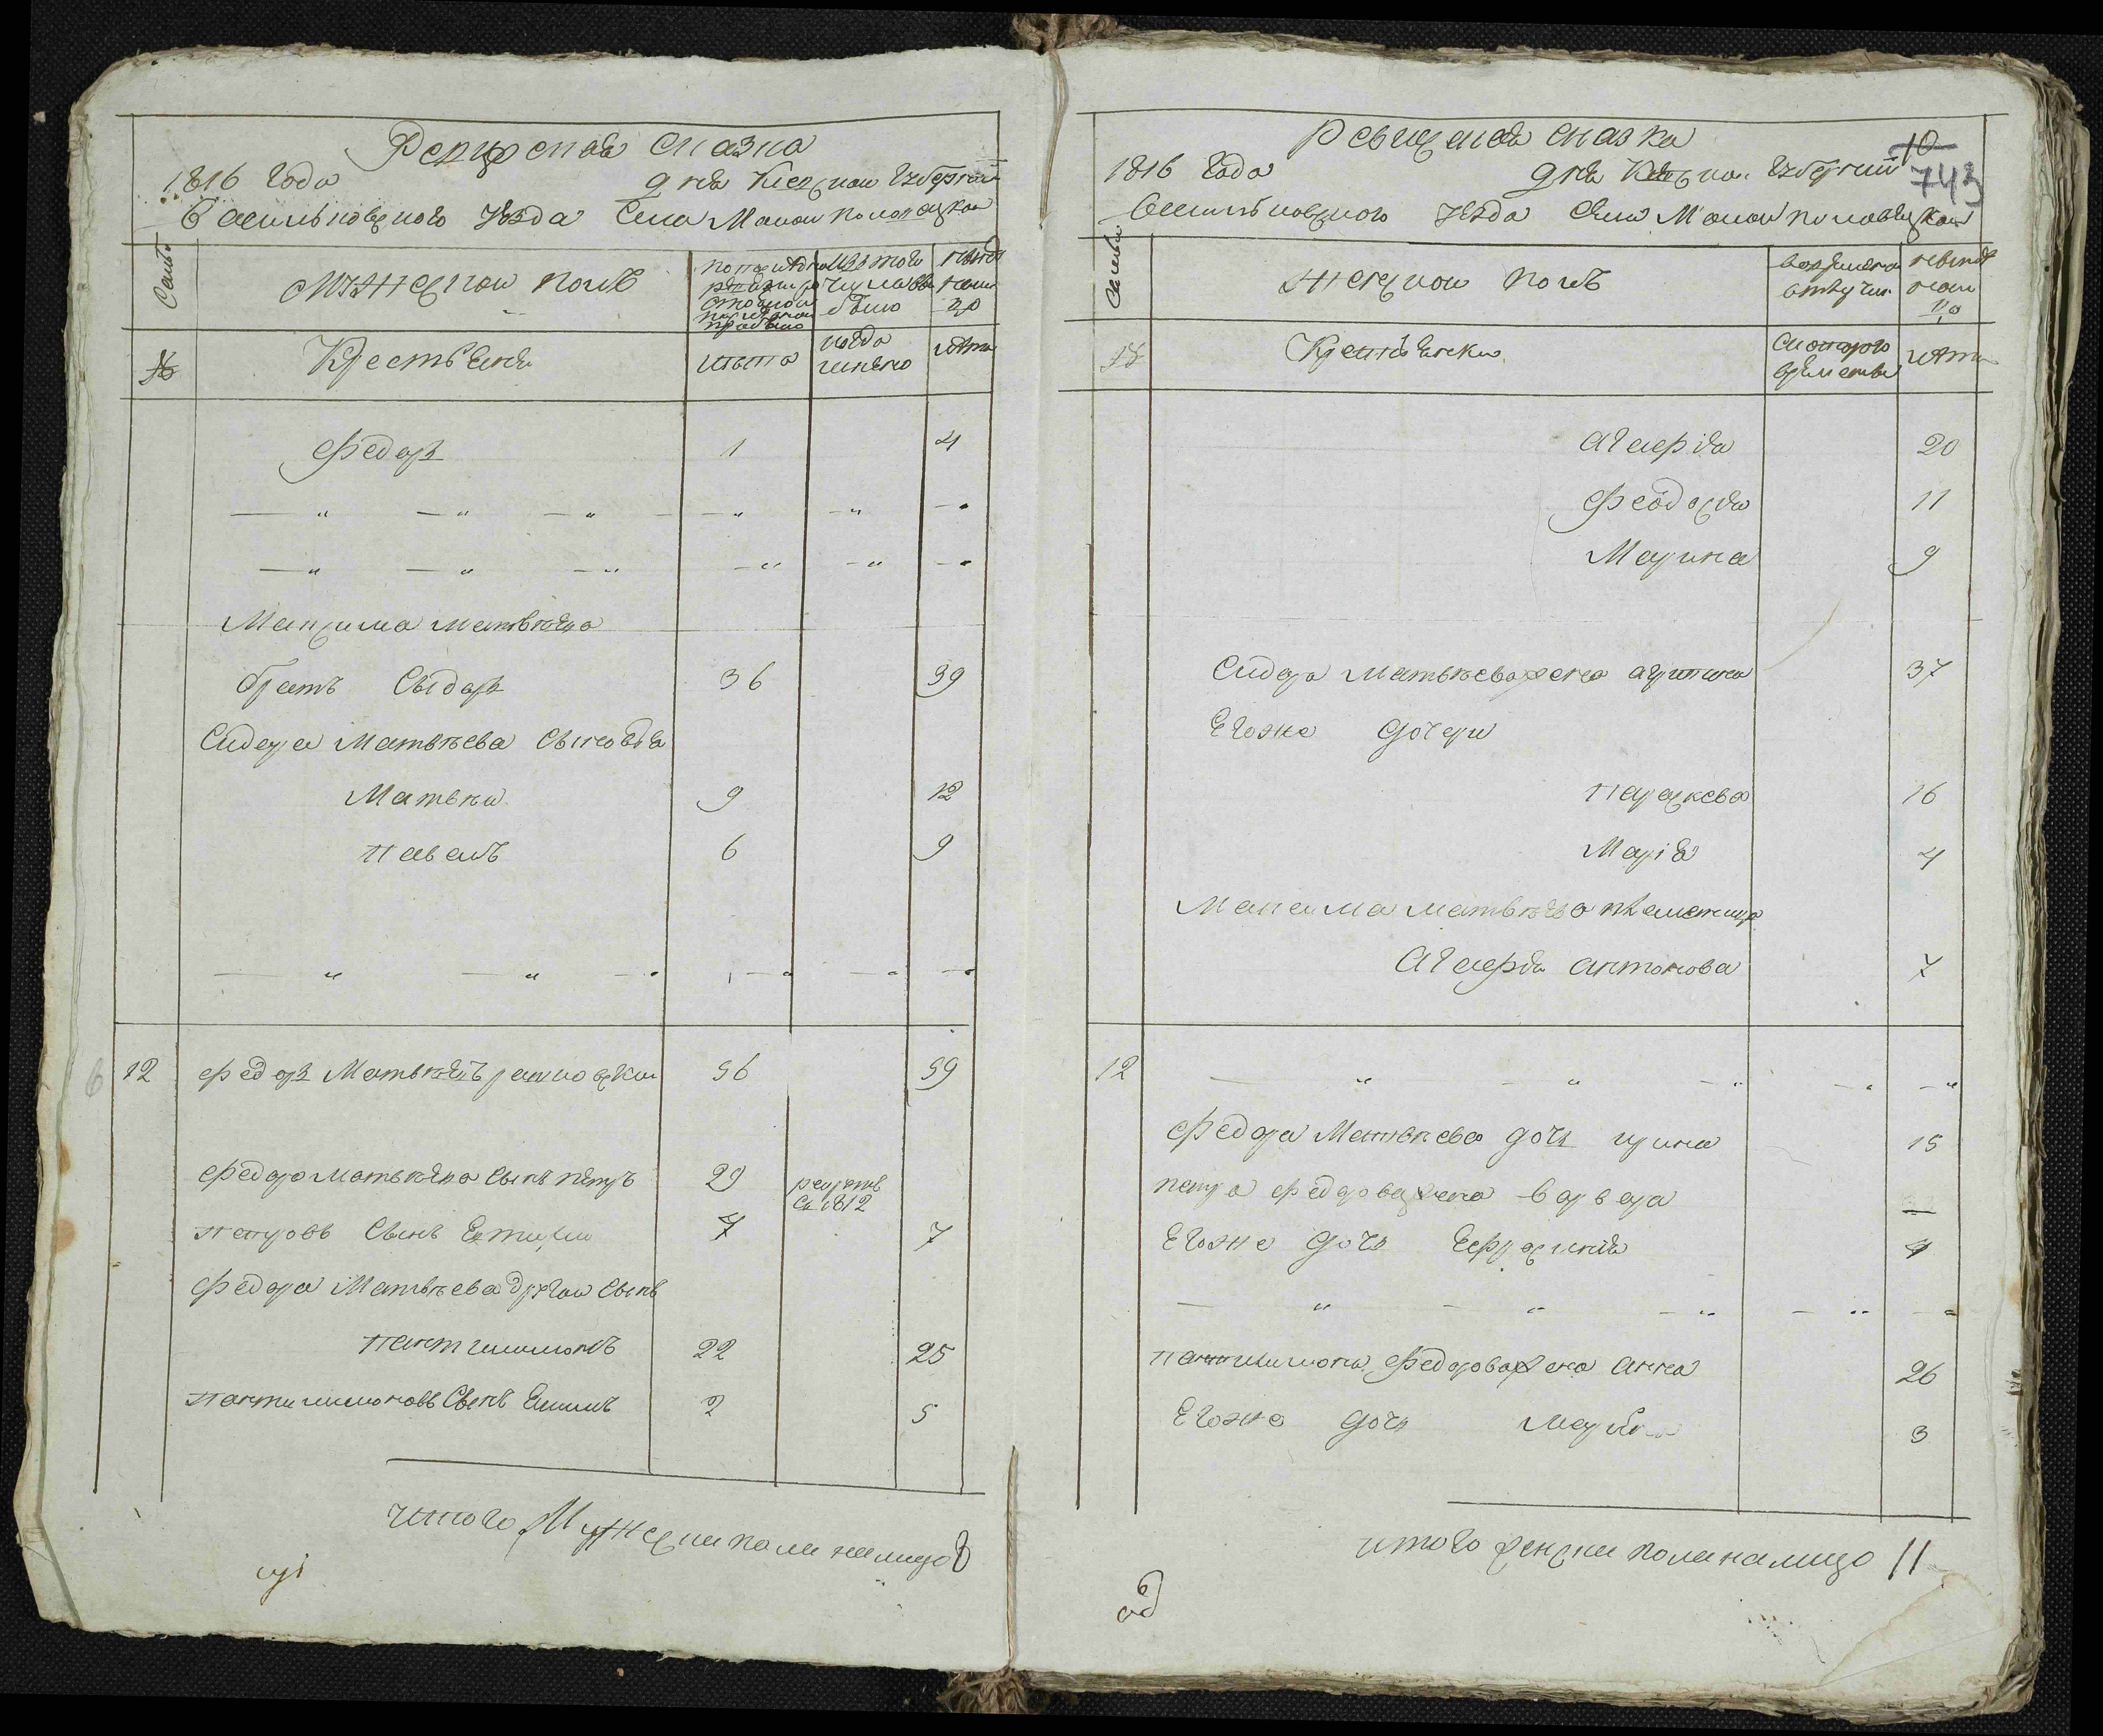 Ревизская сказка
1816 года дня Киевской Губернии
Васильковского уезда села Малой Половецкой
Семьи
Мужеской полъ
Изъ того числа выбыло
Ныне на лицо
№
Крестьяня
лета
когда имянно
лета
Федоръ 1 4
Максима Матвеева
братъ Сыдоръ 36 39
Сидора Матвеева сыновья
Матвей 9 12
Павелъ 6 9
12 Федоръ Матвеевъ 56 59
Федора Матвеева сынъ Петръ 29 рекрутъ 1812
Петровъ сынъ 4 7
Федора Матвеева другой сынъ
Пантилимонъ 22 25
Пантилимоновъ сынъ 2 5
итого Мужеска пола на лицо 8
Ревизская сказка
10
743
1816 года дня Киевской Губернии
Васильковского уезда села Малой Половецкой
Семьи
Женской полъ
Ныне на лицо
Крестьянки
С которого времени
лета
Агафія 20
Феодосія 11
Марина 9
Сидора Матвеева жена 37
Егоже дочери
Параскева 16
Марія 4
Максима Матвеева племенница
Агафія Антонова 7
12
Федора Матвеева дочь Ирина 15
Петра Федорова жена Варвара
Егоже дочь Ефросинія
Пантилимона Федорова жена Анна 26
Егоже дочь 3
итого женска пола на лицо 11